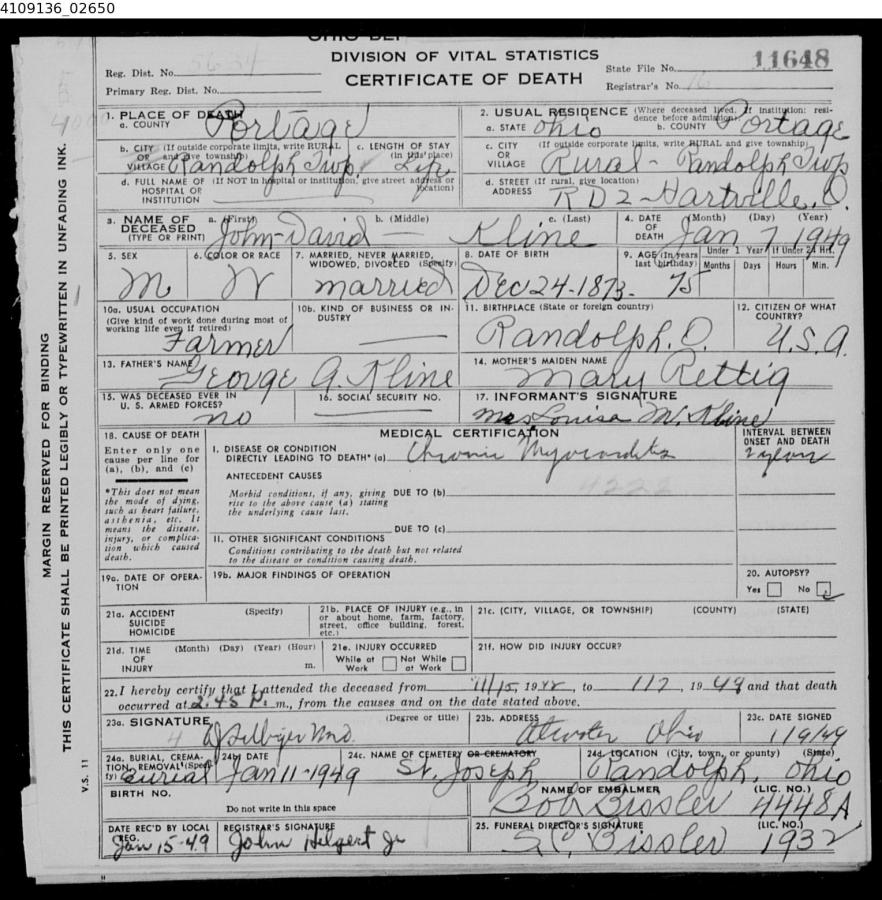 4109136_02650
OHIO DEP
DIVISION OF VITAL STATISTICS
CERTIFICATE OF DEATH
Reg. Dist. No. 5634
Primary Reg. Dist. No.
State File No. 11648
Registrar's No. 16
1. PLACE OF DEATH
a. COUNTY Portage
b. CITY (If outside corporate limits, write RURAL OR and give township) VILLAGE Randolph Twp.
c. LENGTH OF STAY (in this place) Life
d. FULL NAME OF (If NOT in hospital or institution, give street address or location) HOSPITAL OR INSTITUTION
2. USUAL RESIDENCE (Where deceased lived. If institution: residence before admission)
a. STATE Ohio b. COUNTY Portage
c. CITY (If outside corporate limits, write RURAL and give township) OR VILLAGE Rural - Randolph Twp
d. STREET (If rural, give location) ADDRESS RD 2 - Hartville, O.
3. NAME OF DECEASED (TYPE OR PRINT) a. (First) John David b. (Middle) — c. (Last) Kline
4. DATE OF DEATH (Month) (Day) (Year) Jan 7 1949
5. SEX M
6. COLOR OR RACE W
7. MARRIED, NEVER MARRIED, WIDOWED, DIVORCED (Specify) married
8. DATE OF BIRTH Dec 24-1873-
9. AGE (In years last birthday) 75
Under 1 Year Months Days
If Under 24 Hrs. Hours Min.
10a. USUAL OCCUPATION (Give kind of work done during most of working life even if retired) Farmer
10b. KIND OF BUSINESS OR INDUSTRY —
11. BIRTHPLACE (State or foreign country) Randolph. O.
12. CITIZEN OF WHAT COUNTRY? U.S.A.
13. FATHER'S NAME George A. Kline
14. MOTHER'S MAIDEN NAME Mary Rettig
15. WAS DECEASED EVER IN U. S. ARMED FORCES? no
16. SOCIAL SECURITY NO. —
17. INFORMANT'S SIGNATURE Mrs Louisa M. Kline
18. CAUSE OF DEATH
Enter only one cause per line for (a), (b), and (c)
*This does not mean the mode of dying, such as heart failure, asthenia, etc. It means the disease, injury, or complication which caused death.
MEDICAL CERTIFICATION
INTERVAL BETWEEN ONSET AND DEATH
I. DISEASE OR CONDITION DIRECTLY LEADING TO DEATH* (a) Chronic Myocarditis 2 years
ANTECEDENT CAUSES
4222
Morbid conditions, if any, giving rise to the above cause (a) stating the underlying cause last.
DUE TO (b)
DUE TO (c)
II. OTHER SIGNIFICANT CONDITIONS
Conditions contributing to the death but not related to the disease or condition causing death.
19a. DATE OF OPERATION
19b. MAJOR FINDINGS OF OPERATION
20. AUTOPSY?
Yes No
21a. ACCIDENT SUICIDE HOMICIDE (Specify)
21b. PLACE OF INJURY (e.g., in or about home, farm, factory, street, office building, forest, etc.)
21c. (CITY, VILLAGE, OR TOWNSHIP) (COUNTY) (STATE)
21d. TIME OF INJURY (Month) (Day) (Year) (Hour) m.
21e. INJURY OCCURRED While at Work Not While at Work
21f. HOW DID INJURY OCCUR?
22. I hereby certify that I attended the deceased from 11/15, 1942, to 1/7, 1949 and that death
occurred at 2:45 P. m., from the causes and on the date stated above.
23a. SIGNATURE (Degree or title) M.D.
23b. ADDRESS Atwater Ohio
23c. DATE SIGNED 1/9/49
24a. BURIAL, CREMATION, REMOVAL (Specify) Burial
24b. DATE Jan 11-1949
24c. NAME OF CEMETERY OR CREMATORY St. Joseph
24d. LOCATION (City, town, or county) (State) Randolph, Ohio
BIRTH NO.
Do not write in this space
NAME OF EMBALMER (LIC. NO.) Bob Bissler 4448A
DATE REC'D BY LOCAL REG. Jan 15-49
REGISTRAR'S SIGNATURE John Hilgert Jr
25. FUNERAL DIRECTOR'S SIGNATURE (LIC. NO.) S.C. Bissler 1932
MARGIN RESERVED FOR BINDING
THIS CERTIFICATE SHALL BE PRINTED LEGIBLY OR TYPEWRITTEN IN UNFADING INK.
V.S. 11